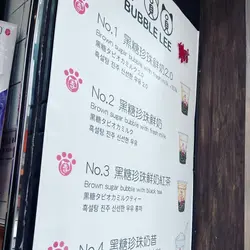 BUBBLE LEE
No.1 黑糖珍珠鮮奶2.0
Brown sugar bubble with fresh milk
黒糖タピオカミルク
흑설탕 진주 신선한 우유
No.2 黑糖珍珠鮮奶
Brown sugar bubble with fresh milk
黒糖タピオカミルク
흑설탕 진주 신선한 우유
No.3 黑糖珍珠鮮奶紅茶
Brown sugar bubble with black tea
黒糖タピオカミルクティー
흑설탕 진주 신선한 우유 홍차
No.4 黑糖珍珠奶昔